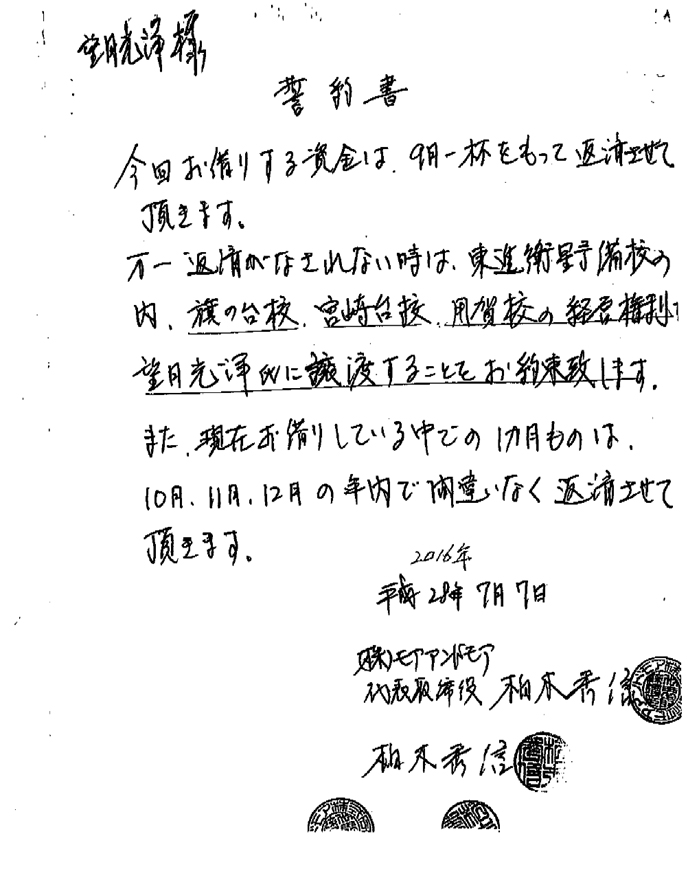 望月光澤様
誓約書
今回お借りする資金は、9月一杯をもって返済させて
頂きます。
万一返済がなされない時は、東進衛星予備校の
内、旗の台校、宮崎台校、用賀校の経営権利を
望月光澤氏に譲渡することをお約束致します。
また、現在お借りしている中での1カ月ものは、
10月、11月、12月の年内で間違いなく返済させて
頂きます。
2016年
平成28年7月7日
(株)モアアンドモア
代表取締役 柏木秀信
柏木秀信